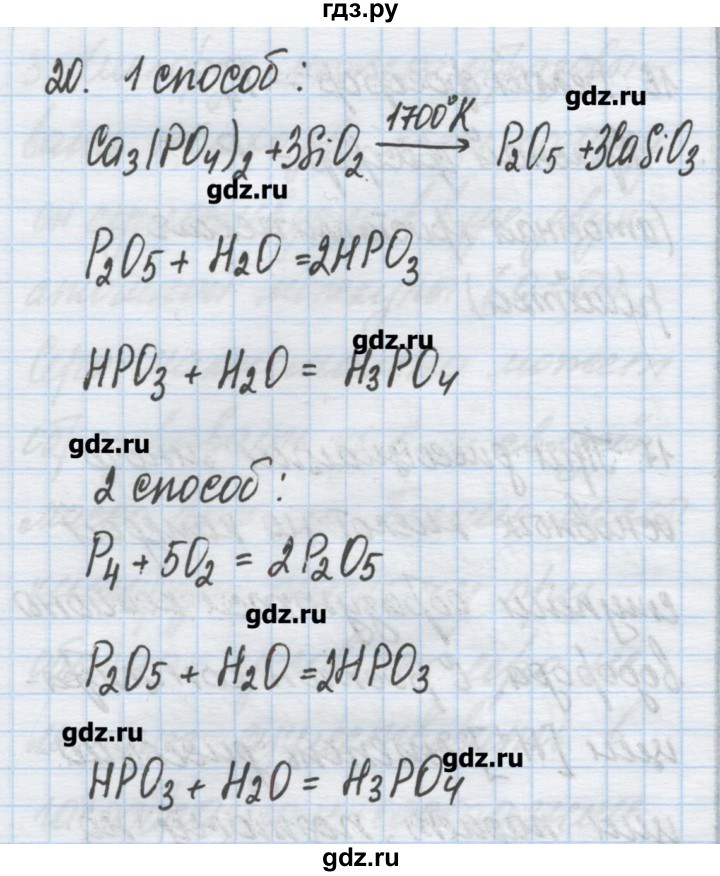 гдз.ру
20. 1 способ:
gdz.ru
Ca₃(PO₄)₂ + 3SiO₂ 1700°K → P₂O₅ + 3CaSiO₃
gdz.ru
P₂O₅ + H₂O = 2HPO₃
gdz.ru
HPO₃ + H₂O = H₃PO₄
gdz.ru
2 способ:
P₄ + 5O₂ = 2P₂O₅
gdz.ru
P₂O₅ + H₂O = 2HPO₃
gdz.ru
gdz.ru
HPO₃ + H₂O = H₃PO₄
gdz.ru